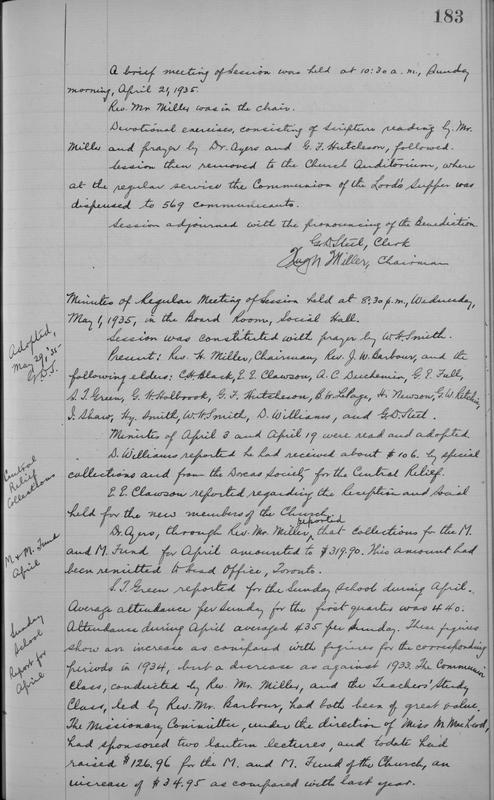 183
A brief meeting of Session was held at 10:30 a.m., Sunday
morning, April 21, 1935.
Rev. Mr. Miller was in the chair.
Devotional exercises, consisting of Scripture reading by Mr.
Miller and prayer by Dr. Ayers and G. F. Hutcheson, followed.
Session then removed to the Church Auditorium, where
at the regular service the Communion of the Lord's Supper was
dispensed to 569 communicants.
Session adjourned with the pronouncing of the Benediction
G. D. Steel, Clerk
Hugh Miller, Chairman
Minutes of Regular Meeting of Session held at 8:30 p.m., Wednesday,
May 1, 1935, in the Board Room, Social Hall.
Adopted,
May 29, '35-
G.D.S.
Session was constituted with prayer by W. H. Smith.
Present: Rev. H. Miller, Chairman, Rev. J. W. Barbour, and the
following elders: C. H. Black, E. E. Clawson, A. C. Duchemin, G. E. Full,
S. T. Green, G. H. Holbrook, G. F. Hutcheson, B. H. LePage, H. Newson, G. W. Ritchie,
J. Shaw, Hy. Smith, W. H. Smith, D. Williams, and G. D. Steel.
Minutes of April 3 and April 19 were read and adopted.
Central
Relief
Collections
D. Williams reported he had received about $106. by special
collections and from the Docas Society for the Central Relief.
E. E. Clawson reported regarding the Reception and Social
held for the new members of the Church.
M & M. Fund
April
Dr. Ayers, through Rev. Mr. Miller, reported that collections for the M.
and M. Fund for April amounted to $319.90. This amount had
been remitted to head Office, Toronto.
Sunday
School
Report for
April
S. T. Green reported for the Sunday School during April.
Average attendance per Sunday for the first quarter was 440.
Attendance during April averaged 435 per Sunday. These figures
show an increase as compared with figures for the corresponding
periods in 1934, but a decrease as against 1933. The Communion
Class, conducted by Rev. Mr. Miller, and the Teachers' Study
Class, led by Rev. Mr. Barbour, had both been of great value.
The Missionary Committee, under the direction of Miss M. MacLeod,
had sponsored two lantern lectures, and to date had
raised $126.96 for the M. and M. Fund of the Church, an
increase of $34.95 as compared with last year.